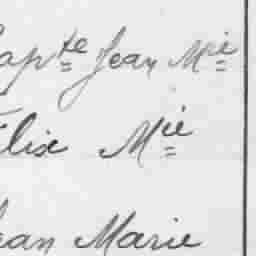 Capte Jean Mie
Félix Mie
Jean Marie